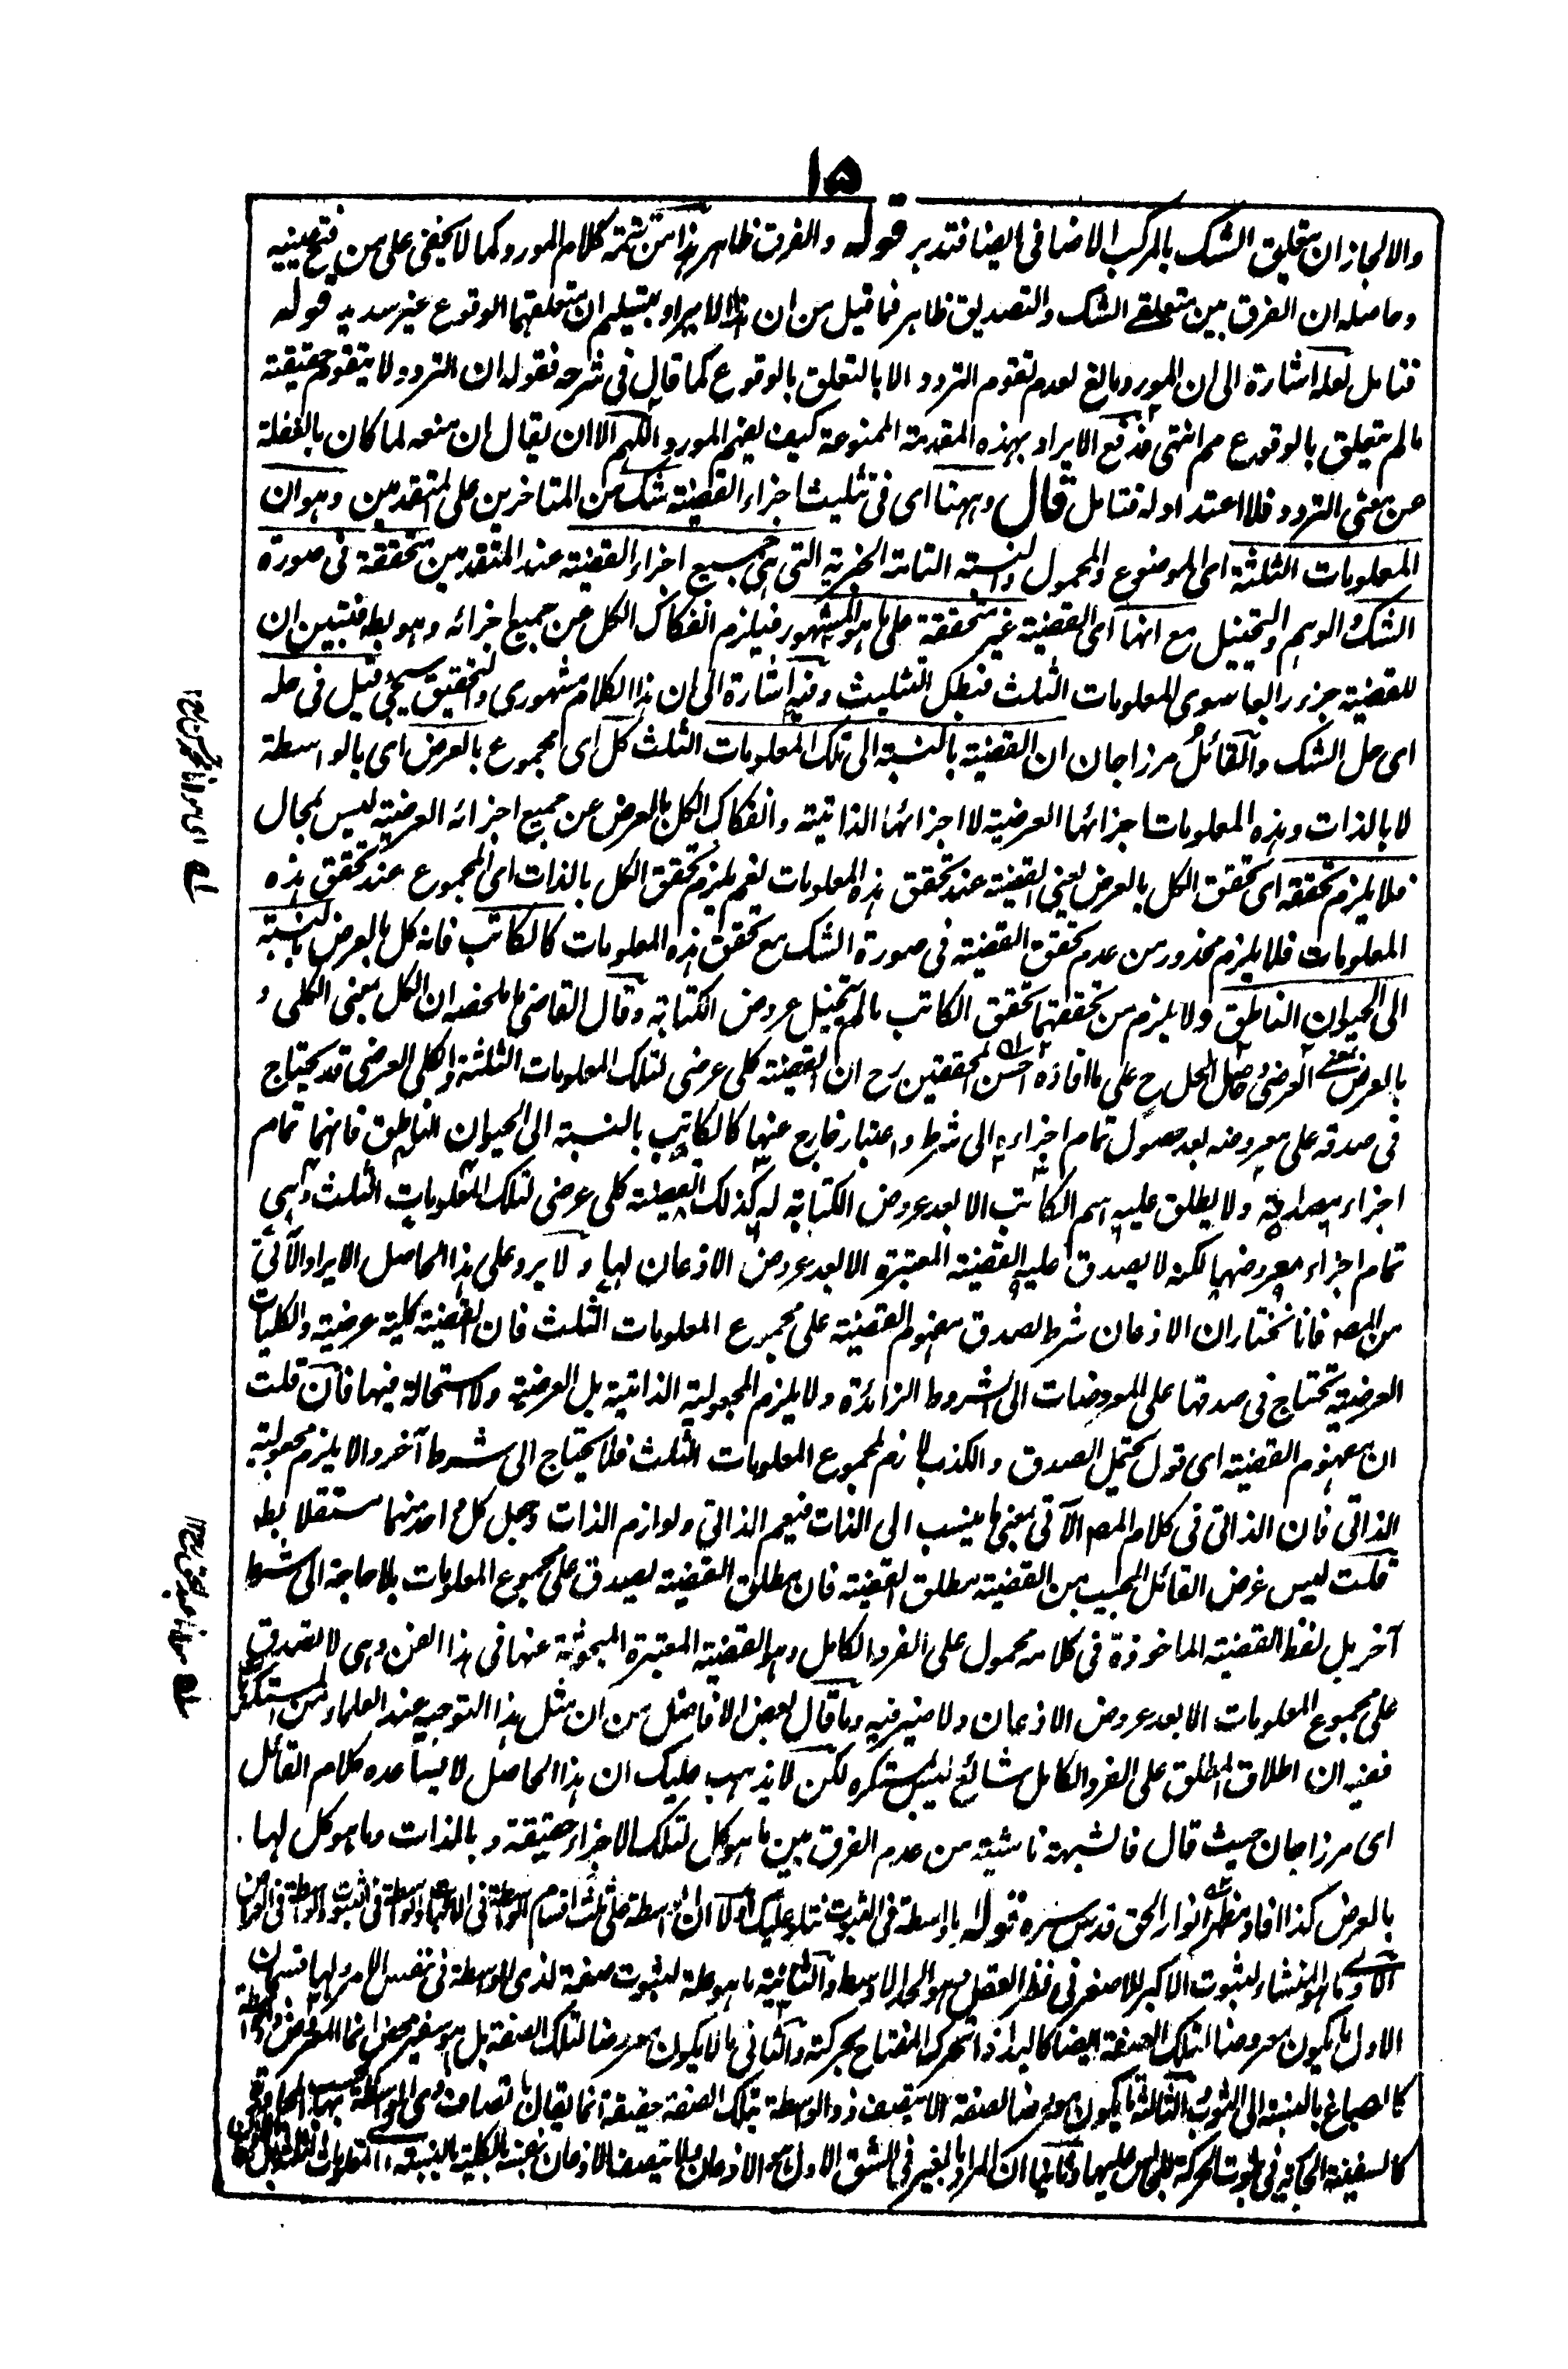 ۱۵
والا لجاز ان يتعلق الشك بالمركب الاضافى ايضا فتدبر قوله والفرق ظاهر هذا من تتمة كلام المورد كما لا يخفى على من فتح عينيه
وحاصله ان الفرق بين متعلقے الشك والتصديق ظاهر فما قيل من ان هذا الايراد بتسليم ان متعلقهما الوقوع غير سديد قوله
فتامل لعله اشارة الى ان المورد مانع لعدم تقوم التردد الا بالتعلق بالوقوع كما قال فى شرحه فقوله ان التردد لا يتقوم حقيقته
ما لم يتعلق بالوقوع مم انتهى فدفع الايراد بهذه المقدمة الممنوعة كيف يضم المورد اللهم الا ان يقال ان منعه لما كان بالغفلة
عن معنى التردد فلا اعتداد له فتامل قال وههنا اى فى تثليث اجزاء القضية شك من المتاخرين على المتقدمين وهو ان
المعلومات الثلثة اى الموضوع والمحمول والنسبة التامة الخبرية التى هى جميع اجزاء القضية عند المتقدمين متحققة فى صورة
الشك والوهم والتخييل مع انها اى القضية غير متحققة على ما هو المشهور فيلزم انفكاك الكل عن جميع اجزائه وهو بط فتبين ان
للقضية جزء رابعا سوى المعلومات الثلث فبطل التثليث وفيه اشارة الى ان هذا الكلام مشهورى والتحقيق سيجئ قيل فى حله
اى حل الشك والقائل مرزاجان ان القضية بالنسبة الى تلك المعلومات الثلث كل اى مجموع بالعرض اى بالواسطة
لا بالذات وهذه المعلومات اجزائها العرضية لا اجزائها الذاتية وانفكاك الكل بالعرض عن جميع اجزائه العرضية ليس بمحال
فلا يلزم تحققه اى تحقق الكل بالعرض يعنى القضية عند تحقق هذه المعلومات نعم يلزم تحقق الكل بالذات اى المجموع عند تحقق هذه
المعلومات فلا يلزم محذور من عدم تحقق القضية فى صورة الشك مع تحقق هذه المعلومات كالكاتب فانه كل بالعرض بالنسبة
الى الحيوان الناطق ولا يلزم من تحققهما تحقق الكاتب ما لم يتخيل عروض الكتابة وقال القاضى ما ملخصه ان الكل بمعنى الكلى و
بالعرض بمعنے العرضى وحاصل الحل ح على ما افاده احسن المحققين رح ان القضية كلى عرضى لتلك المعلومات الثلثة والكلى العرضى قد يحتاج
فى صدقه على معروضه بعد حصول تمام اجزاءه الى شرط واعتبار خارج عنها كالكاتب بالنسبة الى الحيوان الناطق فانهما تمام
اجزاء مصداقه ولا يطلق عليه اسم الكاتب الا بعد عروض الكتابة له كذلك القضية كلى عرضى لتلك المعلومات الثلث وهى
تمام اجزاء معروضها لكنه لا يصدق عليه القضية المعتبرة الا بعد عروض الاذعان لها ولا يرد على هذا الحاصل الايراد الآتى
من المصه فانا نختار ان الاذعان شرط لصدق مفهوم القضية على مجموع المعلومات الثلث فان القضية كلية عرضية والكليات
العرضية تحتاج فى صدقها على المعروضات الى الشروط الزائدة ولا يلزم المجعولية الذاتية بل العرضية ولا استحالة فيها فان قلت
ان مفهوم القضية اى قول يحتمل الصدق والكذب لازم لمجموع المعلومات الثلث فلا يحتاج الى شرط آخر والا يلزم مجعولية
الذاتى فان الذاتى فى كلام المصه الآتى بمعنى ما ينسب الى الذات فيعم الذاتى ولوازم الذات وجعل كل احد منهما مستقلا بط
قلت ليس غرض القائل المجيب من القضية مطلق القضية فان مطلق القضية يصدق على مجموع المعلومات بلا حاجة الى شرط
آخر بل لفظ القضية الماخوذة فى كلامه محمول على الفرد الكامل وهو القضية المعتبرة المبحوثة عنها فى هذا الفن وهى لا تصدق
على مجموع المعلومات الا بعد عروض الاذعان ولا ضير فيه وما قال بعض الافاضل من ان مثل هذا التوجيه عند العلماء من المستنكر
ففيه ان اطلاق المطلق على الفرد الكامل شائع ليس بمستنكره لكن لا يذهب عليك ان هذا الحاصل لا يساعده كلام القائل
اى مرزاجان حيث قال فالشبهة ناشية من عدم الفرق بين ما هو كل لتلك الاجزاء حقيقة وبالذات وما هو كل لها
بالعرض كذا افاد مظهر انوار الحق قدس سره قوله بالواسطة فى الثبوت نتلو عليك اولا ان الواسطة على ثلث اقسام الواسطة فى الاثبات والواسطة فى الثبوت والواسطة فى العروض
الاولى ما هو المنشاء لثبوت الاكبر للاصغر فى نظر العقل وهو الحد الاوسط والثانية ما هو علة لثبوت صفة لذى الواسطة فى نفس الامر ولها قسمان
الاول ما يكون معروضا لتلك الصفة ايضا كاليد اذا تحرك المفتاح بحركته والثانى ما لا يكون معروضا لتلك الصفة بل هو سفير محض انما المعروض ذو الواسطة
كالصباغ بالنسبة الى الثوب والثالثة ما يكون معروضا لصفة لا يتصف ذو الواسطة بتلك الصفة حقيقة انما يقال باتصاف ذى الواسطة بها
كالسفينة الجارية فى ثبوت الحركة للجالس عليها وثانيا ان المراد بالغير فى الشق الاول هو الاذعان